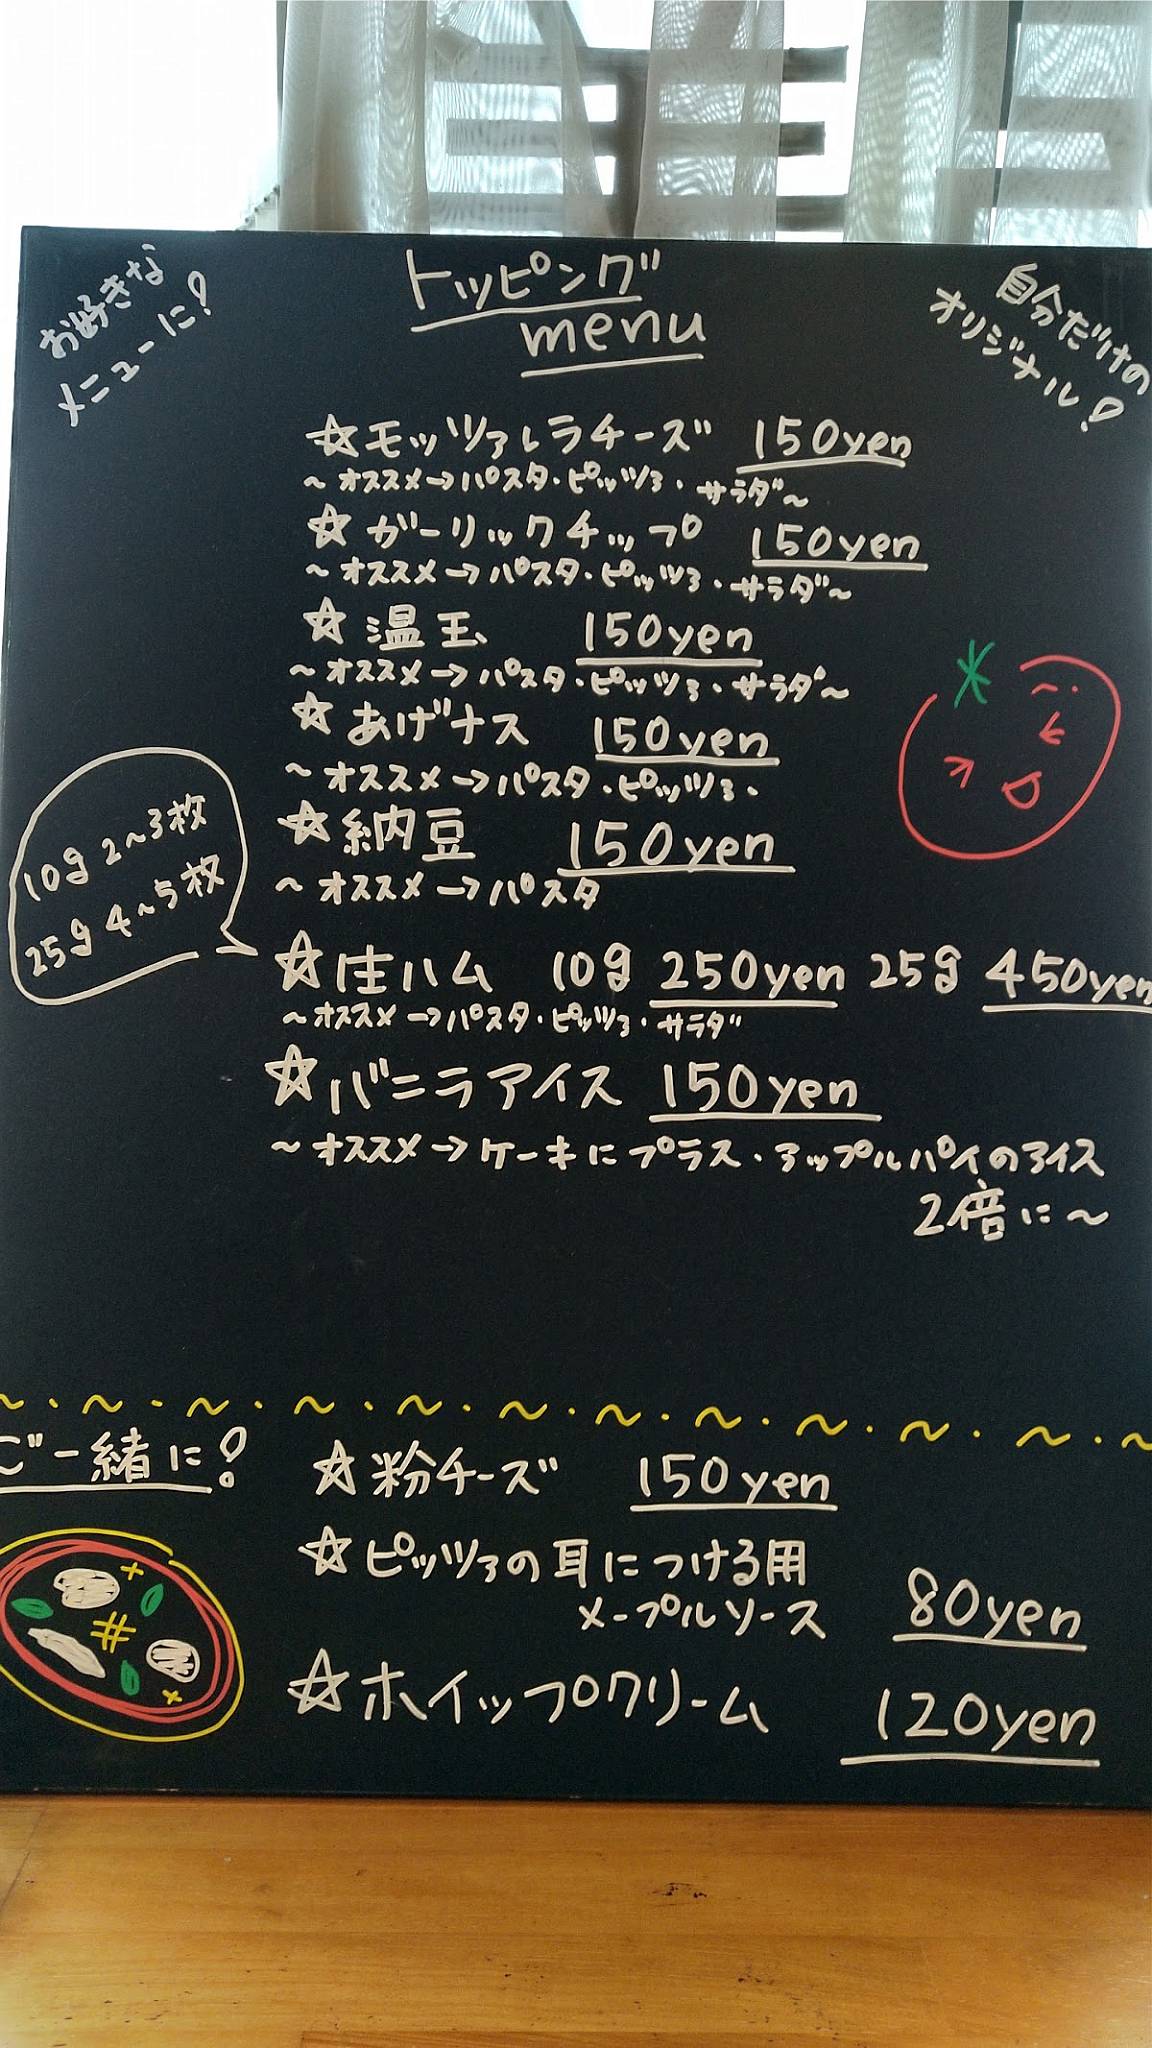 お好きな
メニューに!
トッピング
menu
自分だけの
オリジナル!
☆モッツァレラチーズ 150yen
~オススメ→パスタ・ピッツァ・サラダ~
☆ガーリックチップ 150yen
~オススメ→パスタ・ピッツァ・サラダ~
☆温玉 150yen
~オススメ→パスタ・ピッツァ・サラダ~
☆あげナス 150yen
~オススメ→パスタ・ピッツァ・
☆納豆 150yen
~オススメ→パスタ
10g 2~3枚
25g 4~5枚
☆生ハム 10g 250yen 25g 450yen
~オススメ→パスタ・ピッツァ・サラダ
☆バニラアイス 150yen
~オススメ→ケーキにプラス・アップルパイのアイス
2倍に~
ご一緒に!
☆粉チーズ 150yen
☆ピッツァの耳につける用
メープルソース 80yen
☆ホイップクリーム 120yen